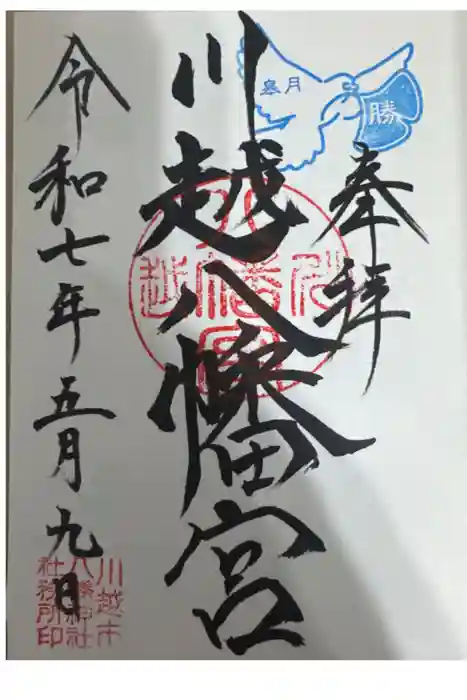 奉拝
皐月
勝
川越八幡宮
川越八幡宮
令和七年五月九日
川越市
八幡神社
社務所印